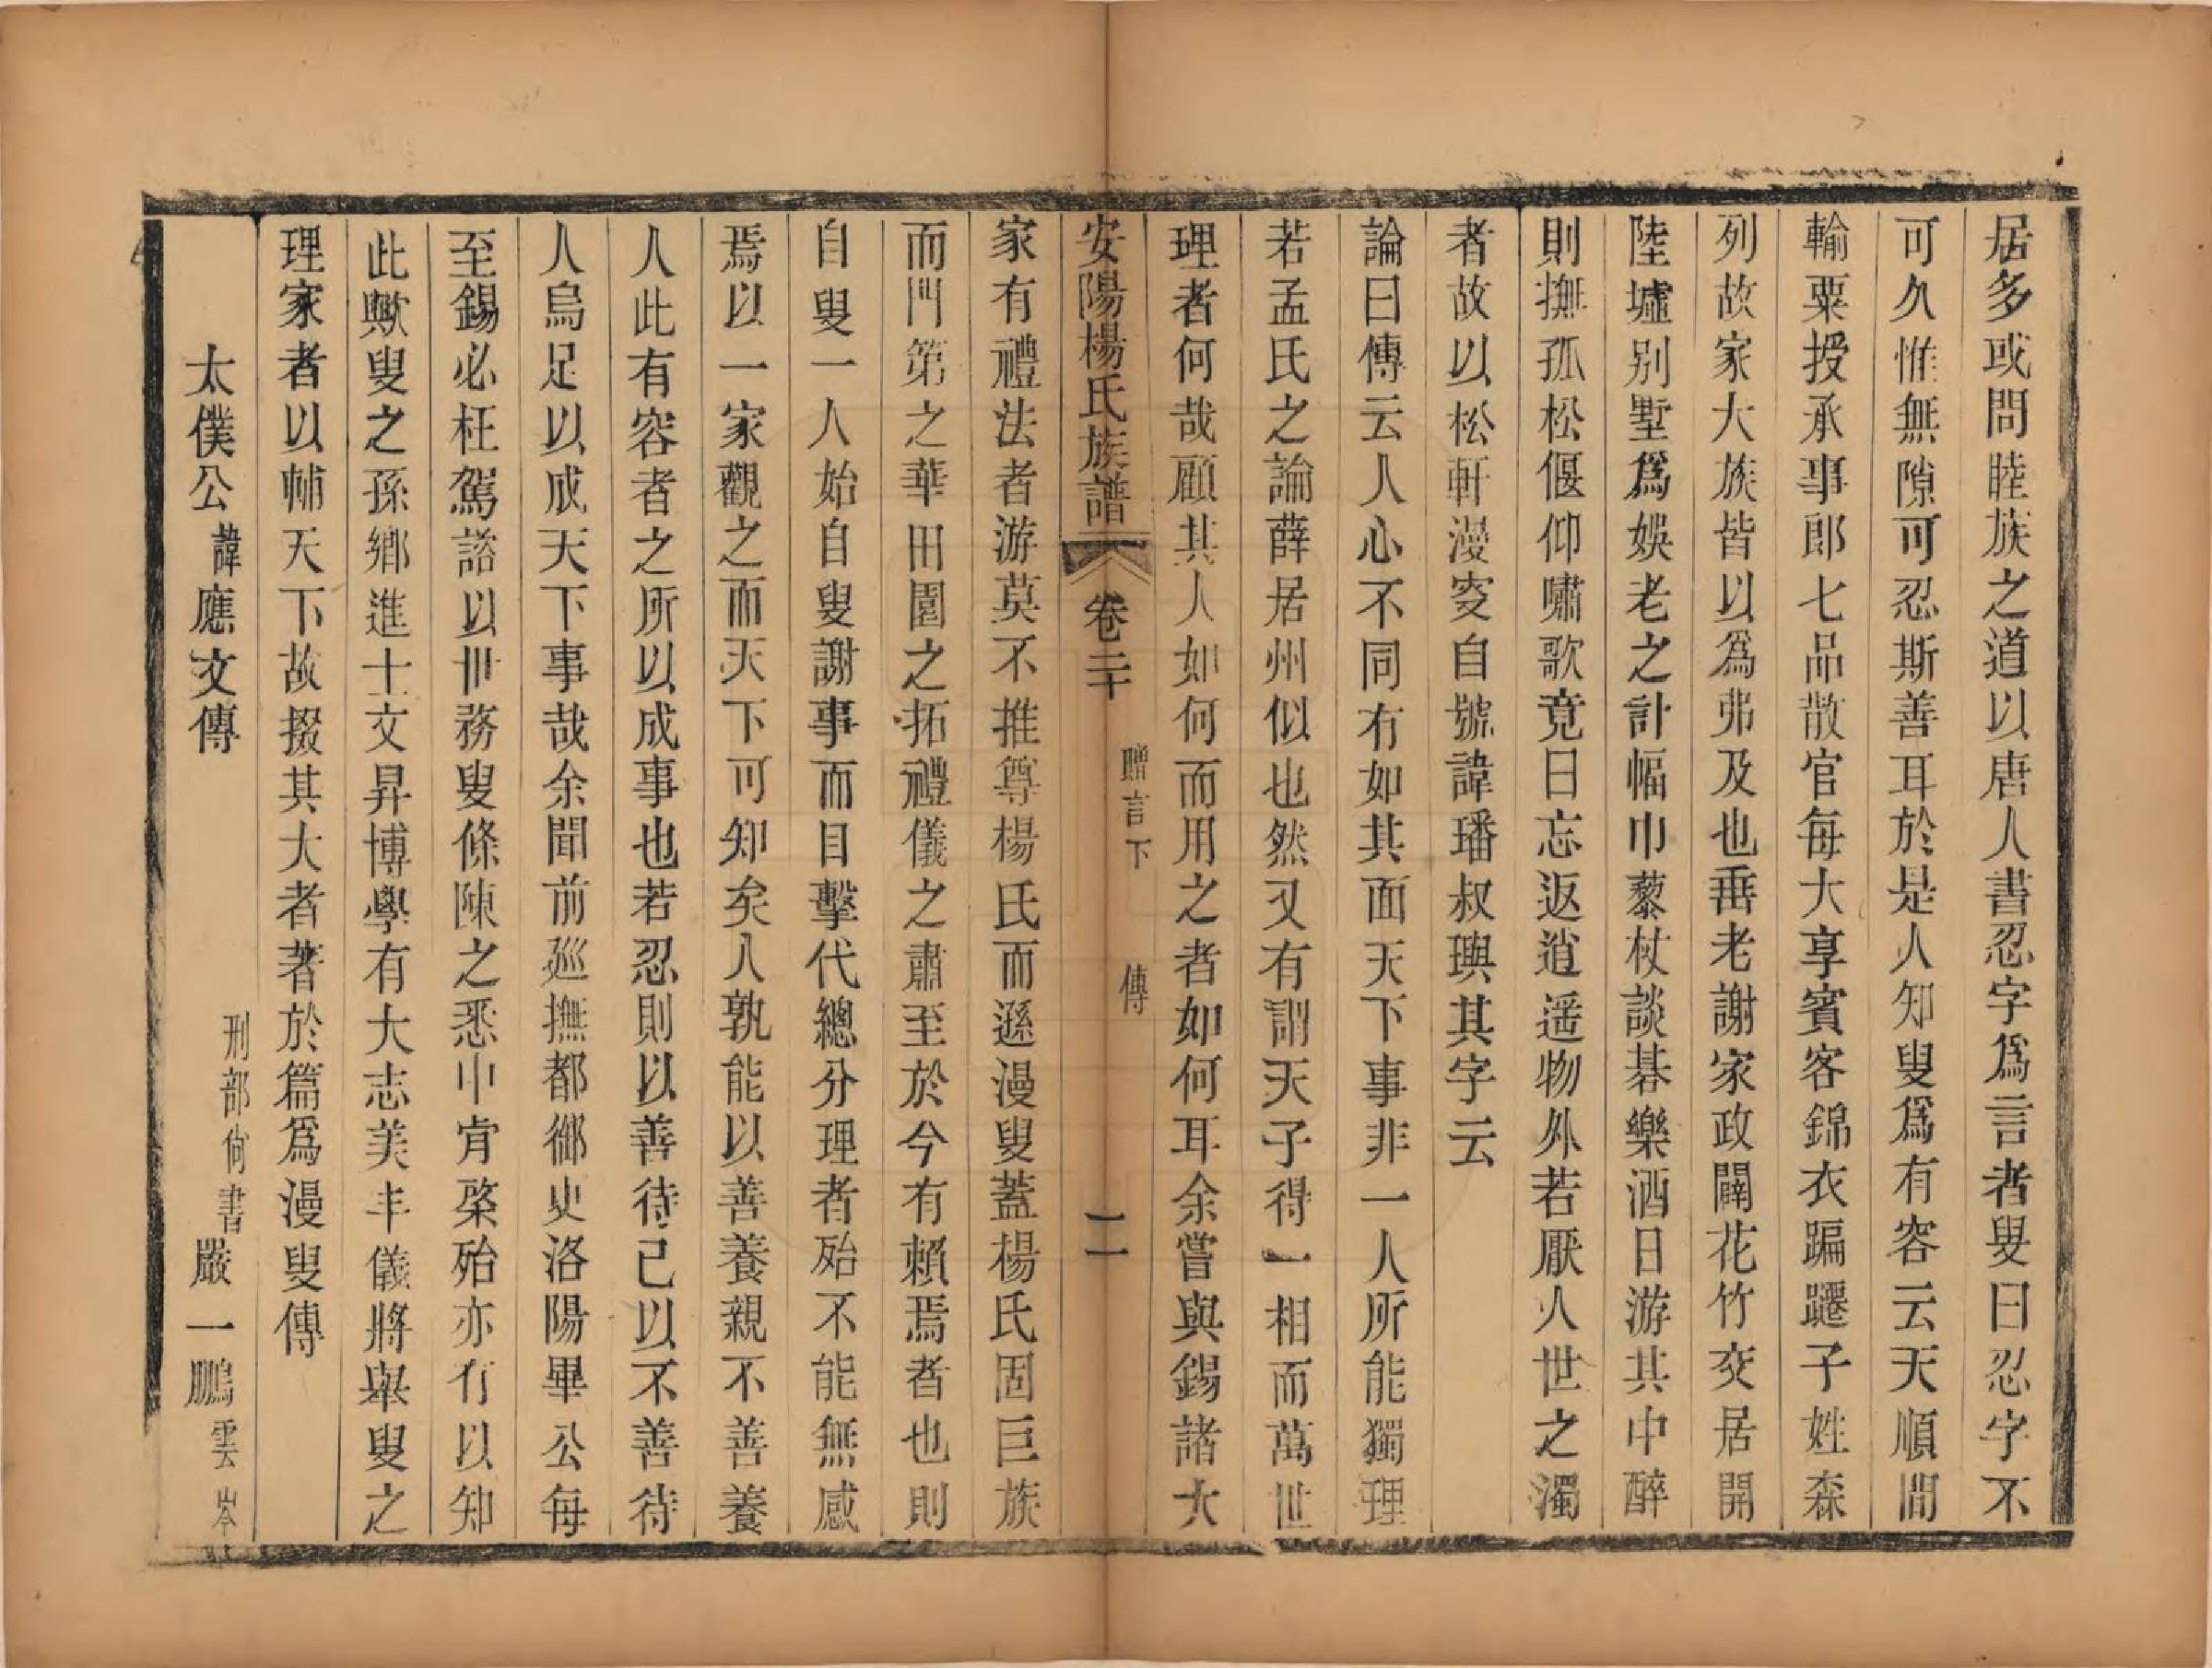 居多或問睦族之道以唐人書忍字爲言者叟曰忍字不
可久惟無隙可忍斯善耳於是人知叟爲有容云天順間
輸粟授承事郎七品散官每大享賓客錦衣蹁躚子姓森
列故家大族皆以爲弗及也垂老謝家政闢花竹交居開
陸墟别墅爲娛老之計幅巾藜杖談碁樂酒日游其中醉
則撫孤松偃仰嘯歌竟日忘返逍遥物外若厭人世之濁
者故以松軒漫叜自號諱璠叔璵其字云
論曰傳云人心不同有如其面天下事非一人所能獨理
若孟氏之論薛居州似也然又有謂天子得一相而萬世
理者何哉顧其人如何而用之者如何耳余嘗與錫諸大
安陽楊氏族譜 卷二十 贈言下 傳 二
家有禮法者游莫不推尊楊氏而遜漫叟蓋楊氏固巨族
而門第之華田園之拓禮儀之肅至於今有賴焉者也則
自叟一人始自叟謝事而目擊代總分理者殆不能無感
焉以一家觀之而天下可知矣人孰能以善養親不善養
人此有容者之所以成事也若忍則以善待己以不善待
人烏足以成天下事哉余聞前巡撫都御史洛陽畢公每
至錫必枉駕諮以世務叟條陳之悉中肯綮殆亦有以知
此歟叟之孫鄉進士文昇博學有大志美丰儀將舉叟之
理家者以輔天下故掇其大者著於篇爲漫叟傳
太僕公諱應文傳 刑部尙書嚴一鵬雲岑